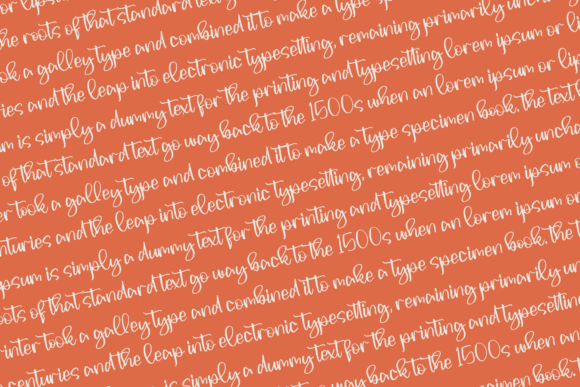 or lipsum
the roots of that standard text
ook a galley type and combined it to make a type
ries and the leap into electronic typesetting, remaining primarily uncha
um is simply a dummy text for the printing and typesetting lorem ipsum or li
of that standard text go way back to the 1500s when an lorem ipsum or lip
er took a galley type and combined it to make a type specimen book. the text
enturies and the leap into electronic typesetting, remaining primarily uncha
ipsum is simply a dummy text for the printing and typesetting lorem ipsum o
oots of that standard text go way back to the 1500s when an lorem ipsum or
rinter took a galley type and combined it to make a type specimen book. the t
centuries and the leap into electronic typesetting, remaining primarily un
simply a dummy text for the printing and typesetting
text go way back to the 1500s when an
make a type specimen book.